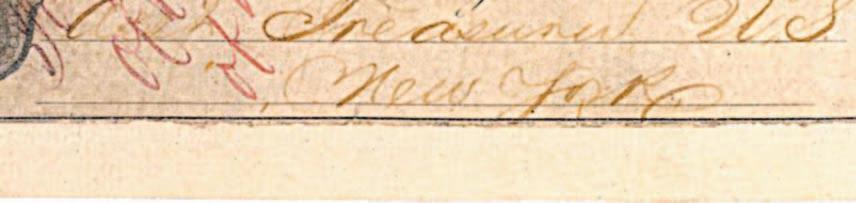 Asst Treasurer U.S.
New York